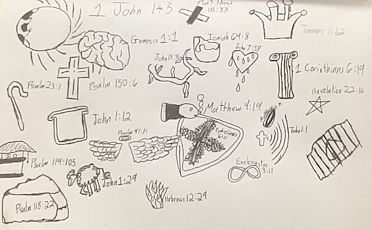 1 John 1:5
10:38
Genesis 1:1
Isaiah 64:8
John 7:38
James 1:12
Psalm 23:1
Psalm 150:6
1 Corinthians 6:19
Revelation 22:16
John 1:12
Matthew 4:19
Psalm 91:11
Psalm 119:105
John 1:29
Ecclesiastes
3:11
Psalm 118:22
Hebrews 12:29